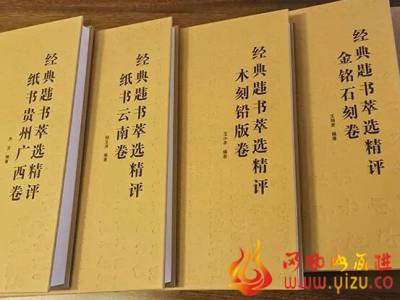 经典韪书萃选精评
纸书贵州广西卷
编著
经典韪书萃选精评
纸书云南卷
编著
经典韪书萃选精评
木刻铅版卷
编著
经典韪书萃选精评
金铭石刻卷
编著
www.yizu.cn